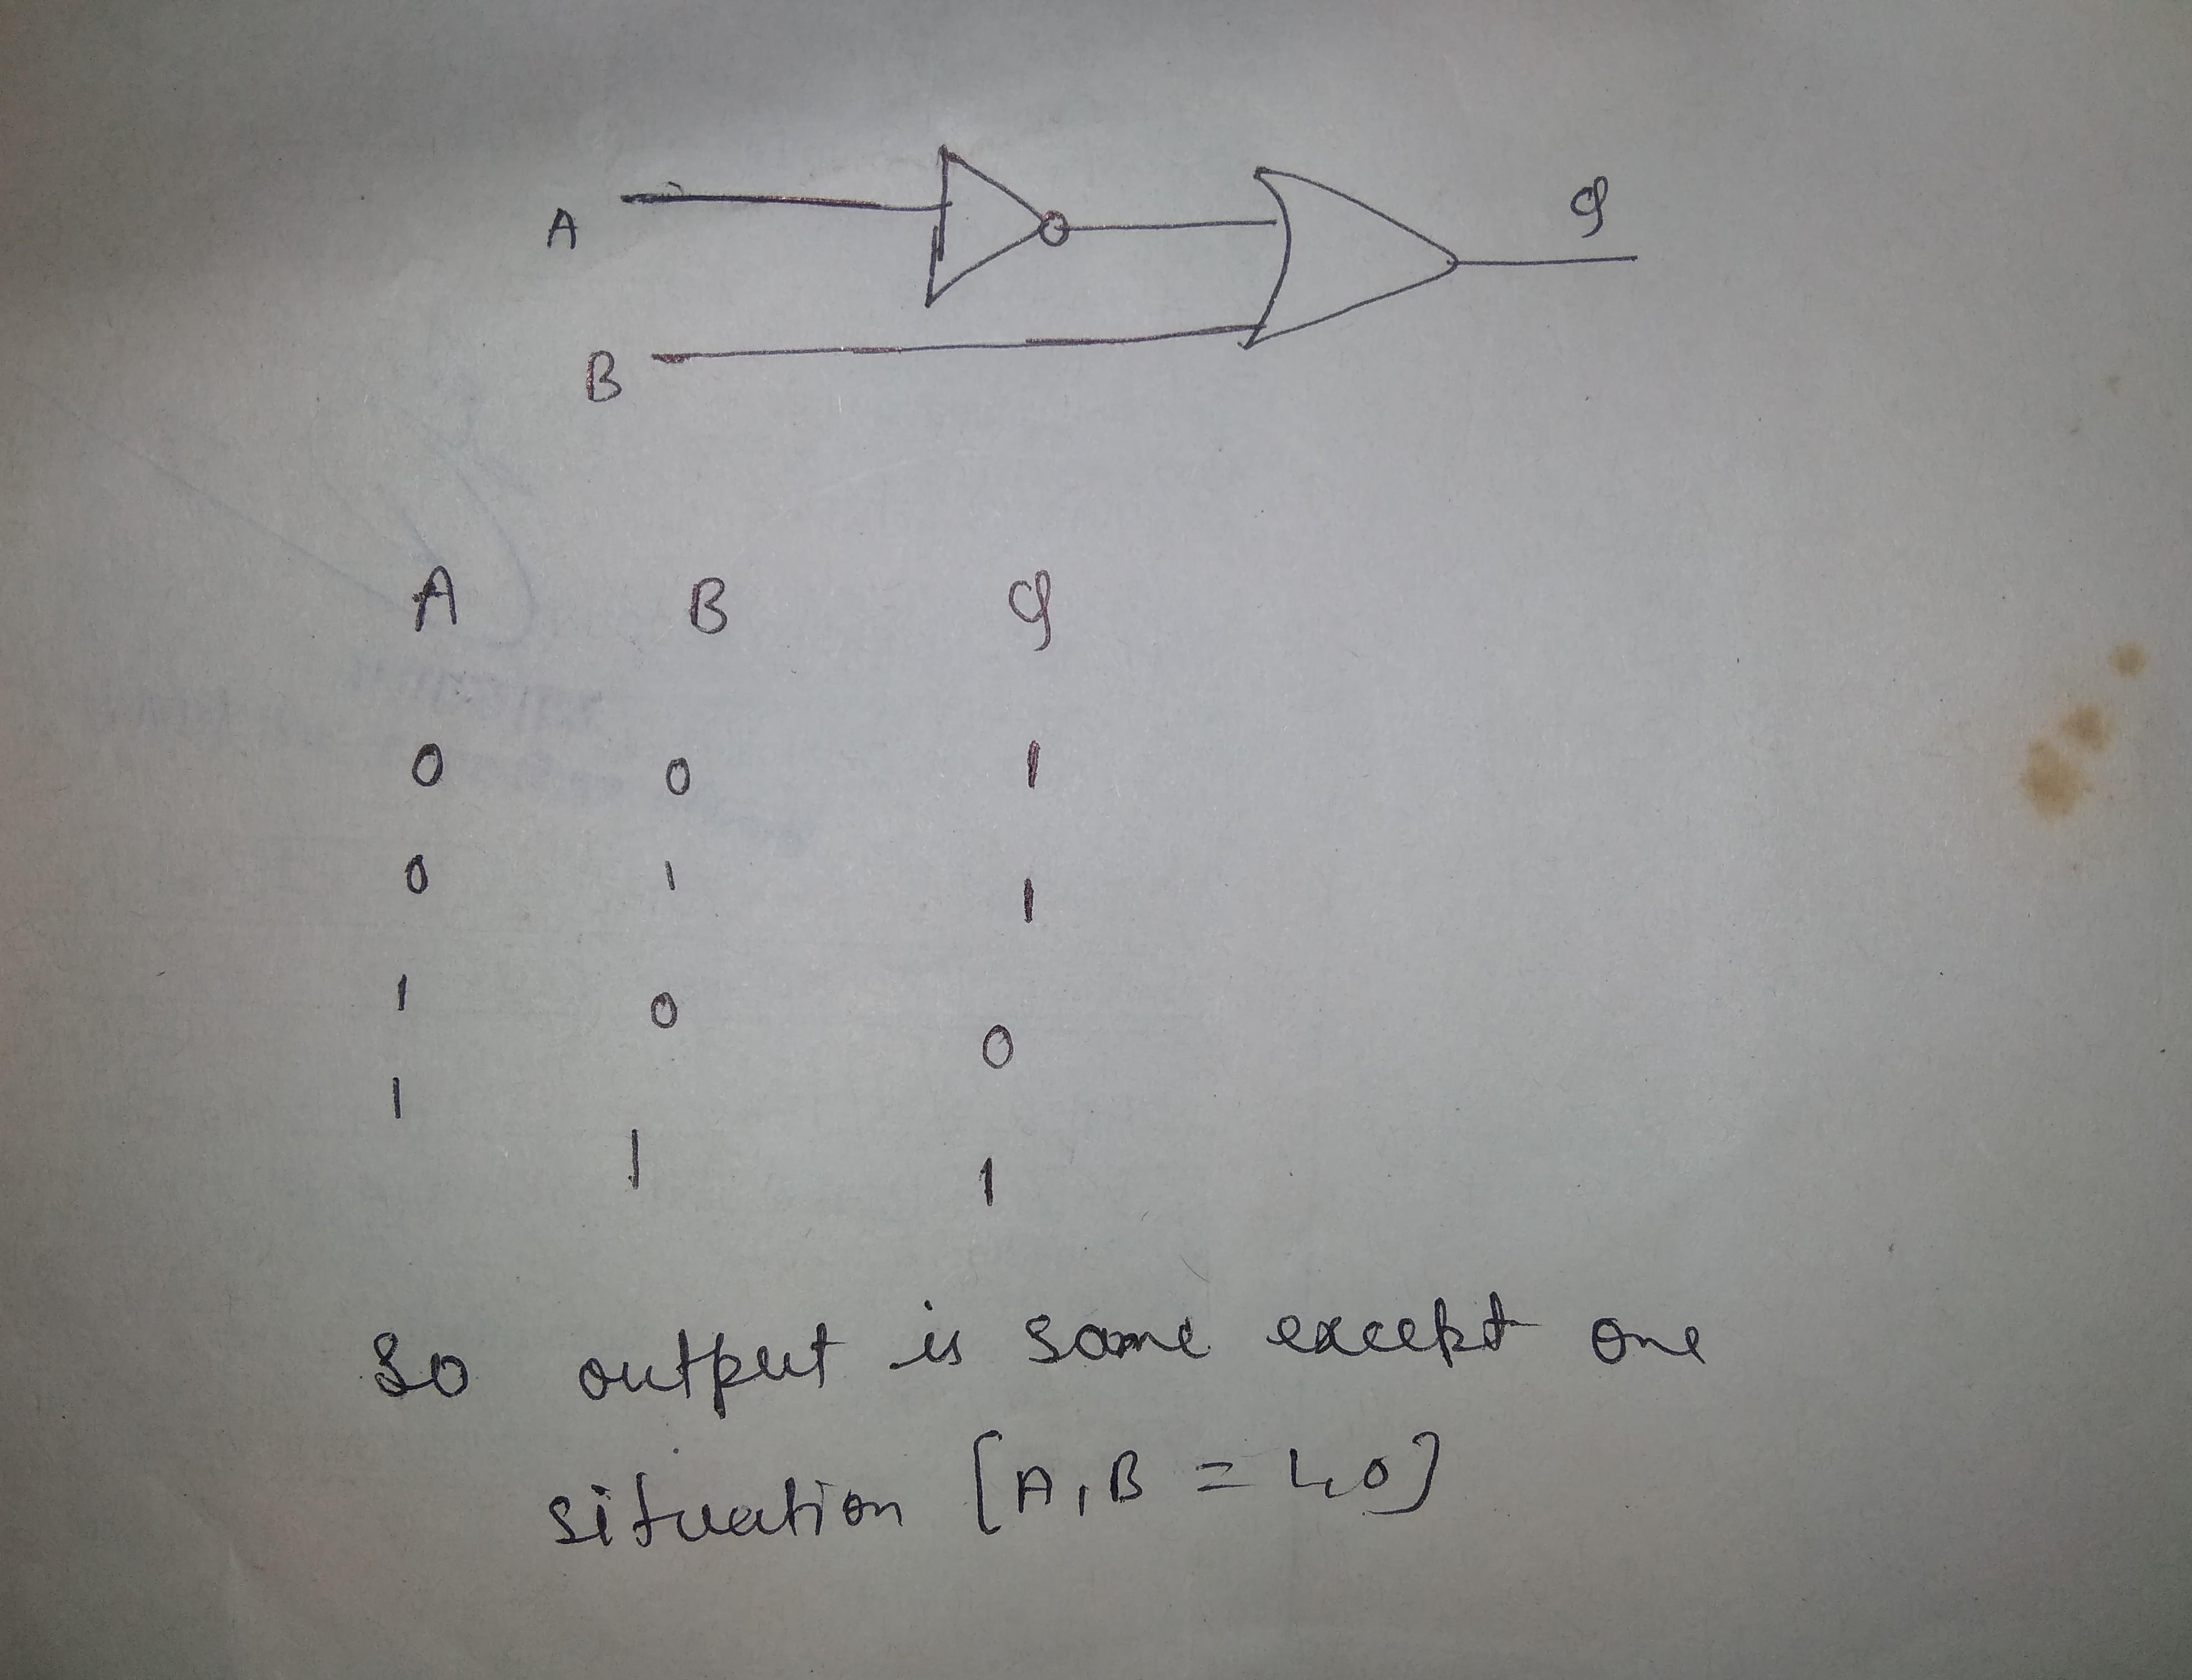 A
B
Q
A B Q
0 0 1
0 1 1
1 0 0
1 1 1
So output is same except one
situation [A,B = 1,0]